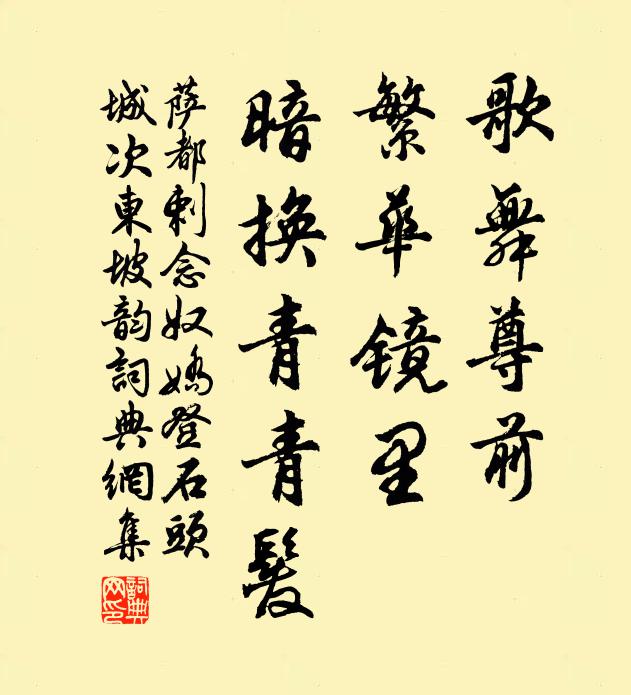 歌舞尊前
繁华镜里
暗换青青髮
萨都剌念奴嬌登石頭
城次東坡韵詞典網集
詞典网印